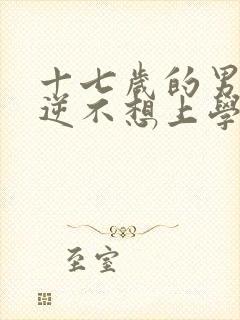 十七歲的男
逆不想上學
至室